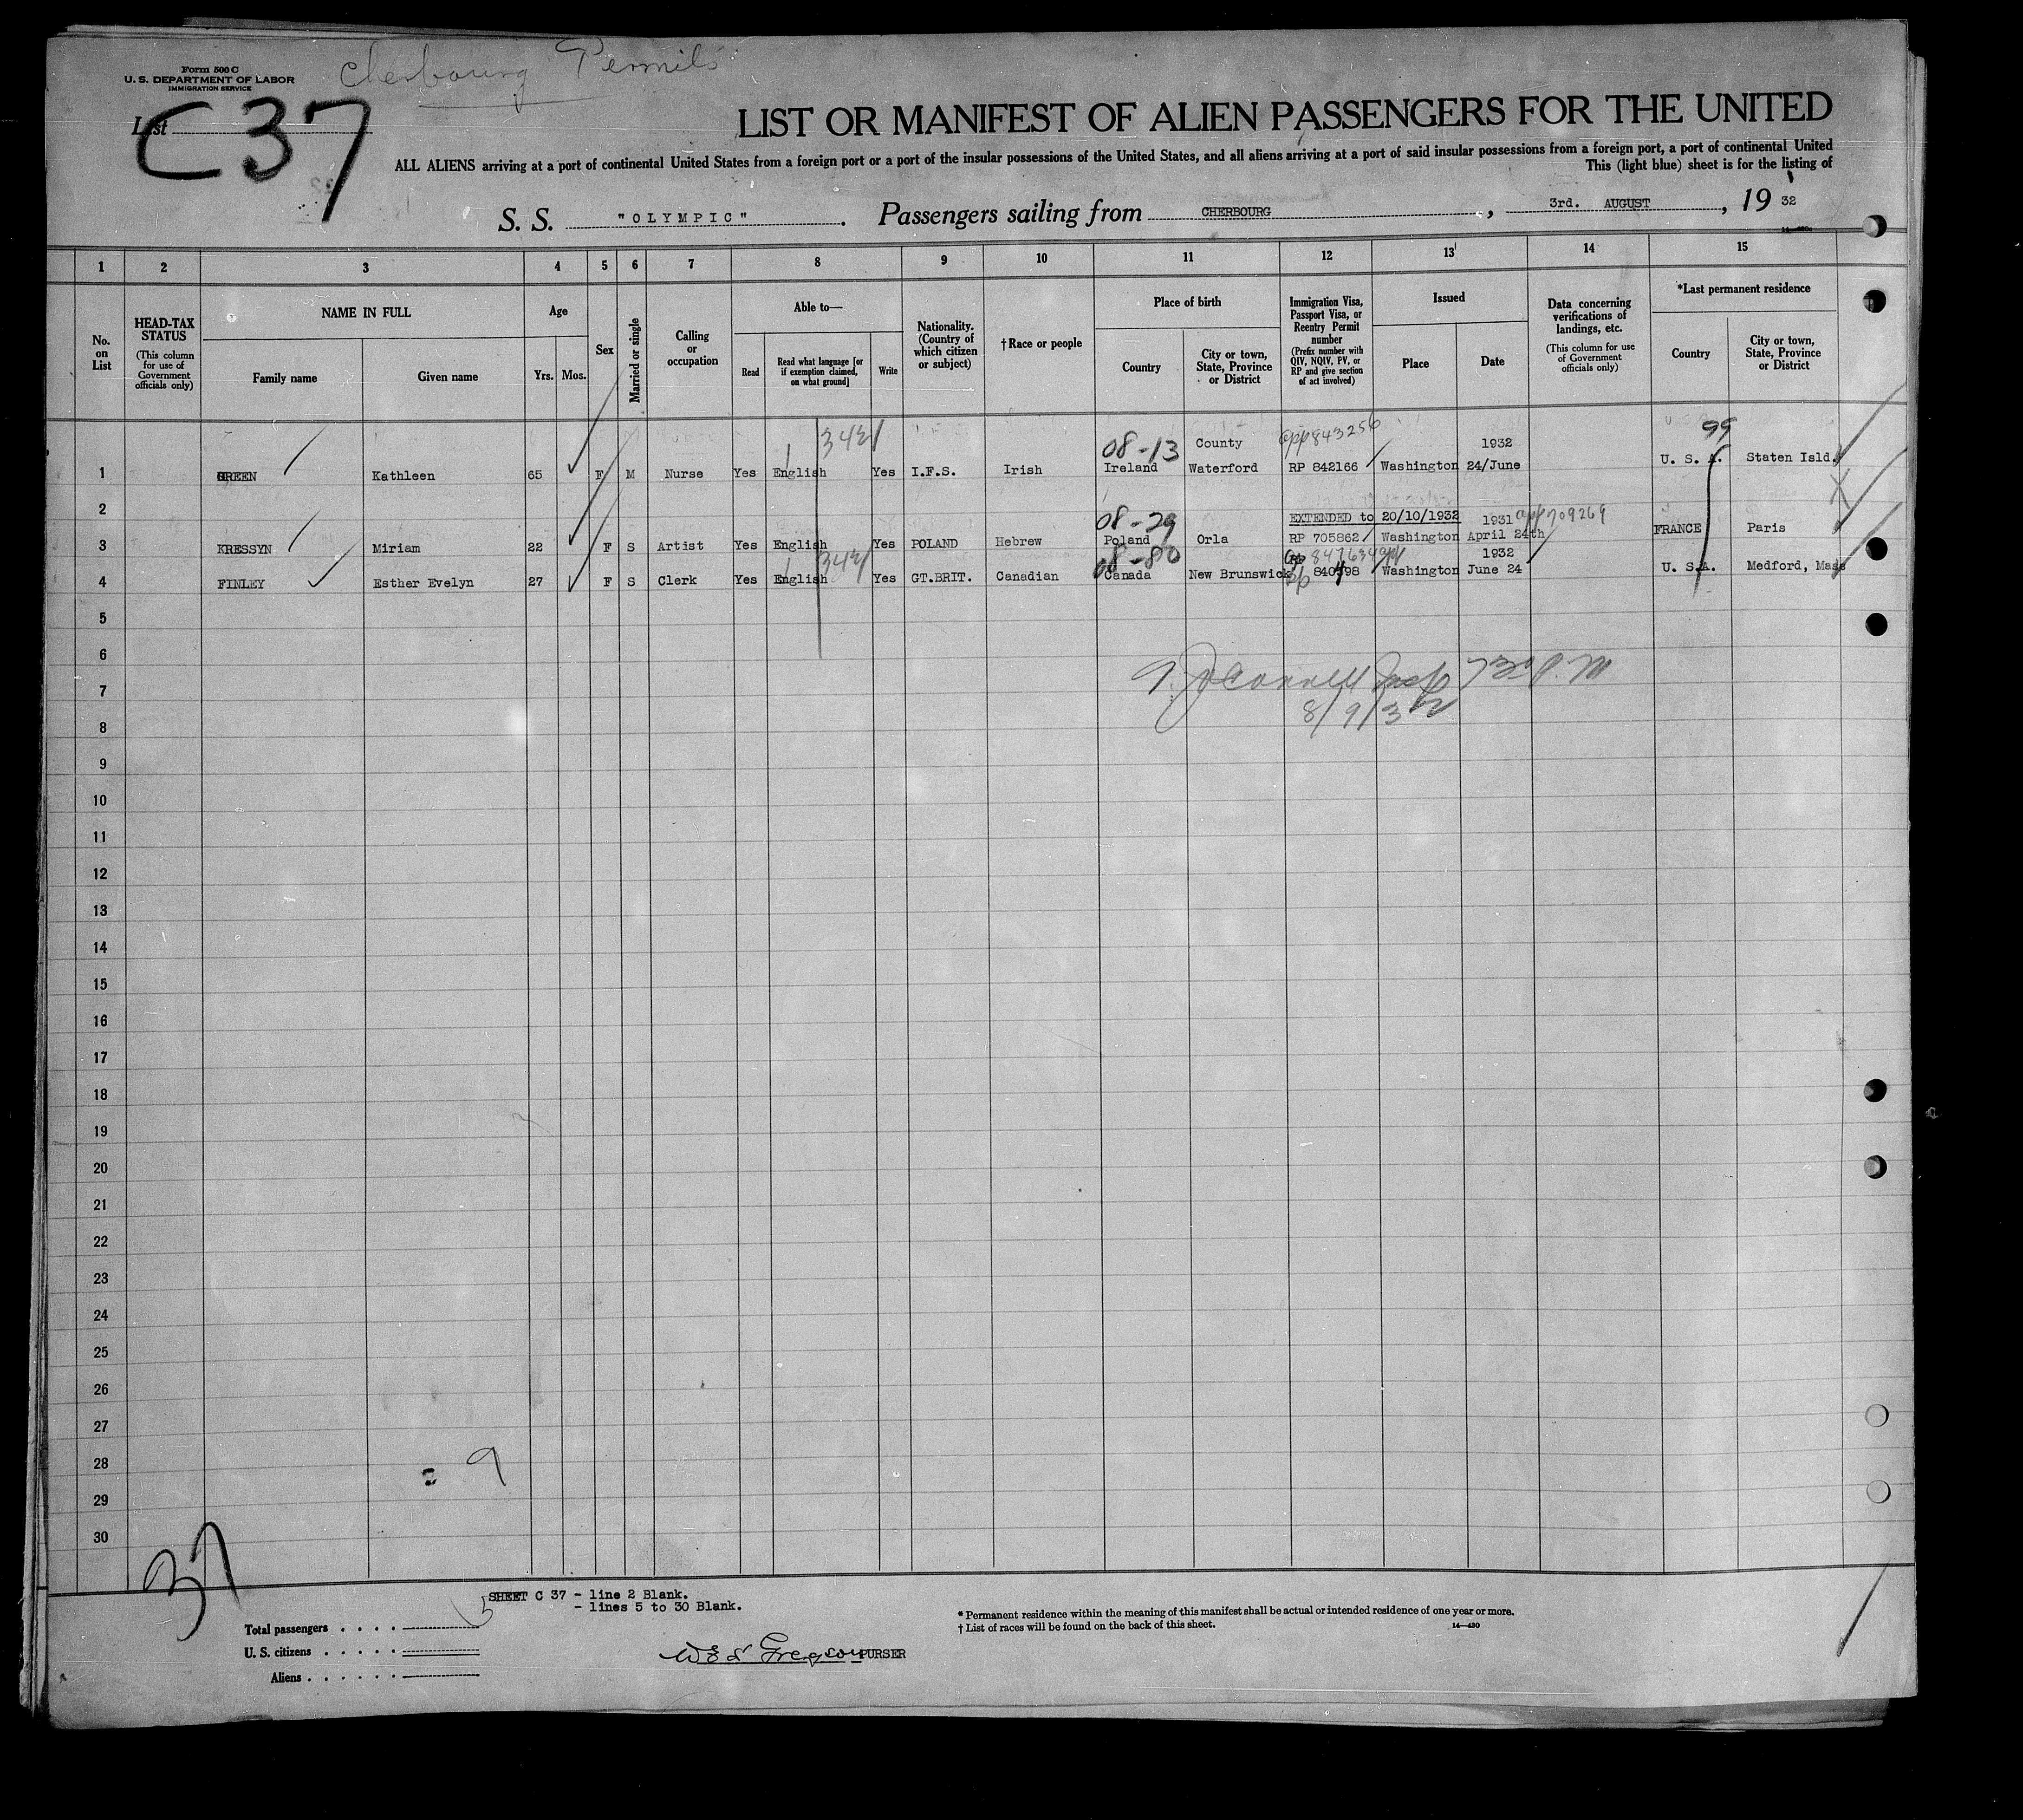 Form 500 C
U. S. DEPARTMENT OF LABOR
IMMIGRATION SERVICE
Cherbourg Permits
List
C37
LIST OR MANIFEST OF ALIEN PASSENGERS FOR THE UNITED
ALL ALIENS arriving at a port of continental United States from a foreign port or a port of the insular possessions of the United States, and all aliens arriving at a port of said insular possessions from a foreign port, a port of continental United
This (light blue) sheet is for the listing of
S. S. "OLYMPIC". Passengers sailing from CHERBOURG, 3rd. AUGUST, 19 32
1 2 3 4 5 6 7 8 9 10 11 12 13 14 15
No. on List
HEAD-TAX STATUS (This column for use of Government officials only)
NAME IN FULL
Family name
Given name
Age
Yrs. Mos.
Sex
Married or single
Calling or occupation
Able to—
Read
Read what language [or if exemption claimed, on what ground]
Write
Nationality. (Country of which citizen or subject)
†Race or people
Place of birth
Country
City or town, State, Province or District
Immigration Visa, Passport Visa, or Reentry Permit number (Prefix number with QIV, NQIV, PV, or RP and give section of act involved)
Issued
Place
Date
Data concerning verifications of landings, etc. (This column for use of Government officials only)
*Last permanent residence
Country
City or town, State, Province or District
08-13 County 843256 1932 99
1 GREEN Kathleen 65 F M Nurse Yes English Yes I.F.S. Irish Ireland Waterford RP 842166 Washington 24/June U. S. A. Staten Isld.
2 08-29 EXTENDED to 20/10/1932 1931 709269
3 KRESSYN Miriam 22 F S Artist Yes English Yes POLAND Hebrew Poland Orla RP 705862 Washington April 24th FRANCE Paris
08-80 847634 1932
4 FINLEY Esther Evelyn 27 F S Clerk Yes English Yes GT.BRIT. Canadian Canada New Brunswick Washington June 24 U. S.A. Medford, Mass
5
6
7
8/9/32
8
9
10
11
12
13
14
15
16
17
18
19
20
21
22
23
24
25
26
27
28
29
30
37
SHEET C 37 - line 2 Blank.
- lines 5 to 30 Blank.
Total passengers
U. S. citizens
Aliens
Gregson PURSER
* Permanent residence within the meaning of this manifest shall be actual or intended residence of one year or more.
† List of races will be found on the back of this sheet.
14—430